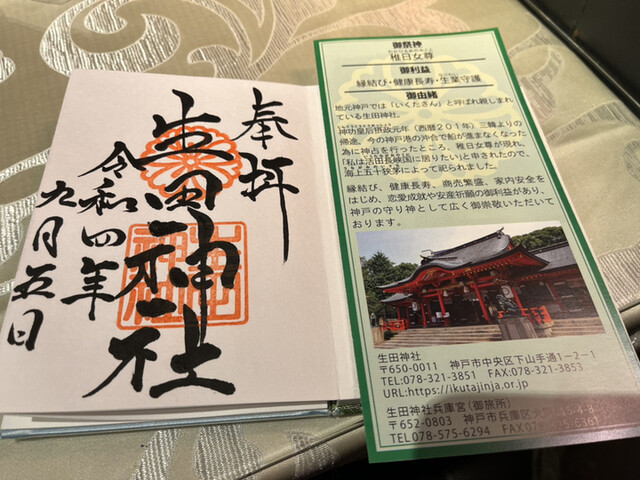 奉拝
生田神社
令和四年
九月五日
御祭神
稚日女尊
御利益
縁結び・健康長寿・生業守護
御由緒
地元神戸では「いくたさん」と呼ばれ親しまれ
ている生田神社。
神功皇后摂政元年（西暦201年）三韓よりの
帰途、今の神戸港の沖合で船が進まなくなった
為に神占を行ったところ、稚日女尊が現れ、
「私は活田長峡国に居りたい」と申されたので、
海上五十狭茅によって祀られました。
縁結び、健康長寿、商売繁盛、家内安全を
はじめ、恋愛成就や安産祈願の御利益があり、
神戸の守り神として広く御崇敬いただいて
おります。
生田神社
〒650-0011 神戸市中央区下山手通1-2-1
TEL:078-321-3851 FAX:078-321-3853
URL:https://ikutajinja.or.jp
生田神社兵庫宮（御旅所）
〒652-0803 神戸市兵庫区大
TEL 078-575-6294 FAX